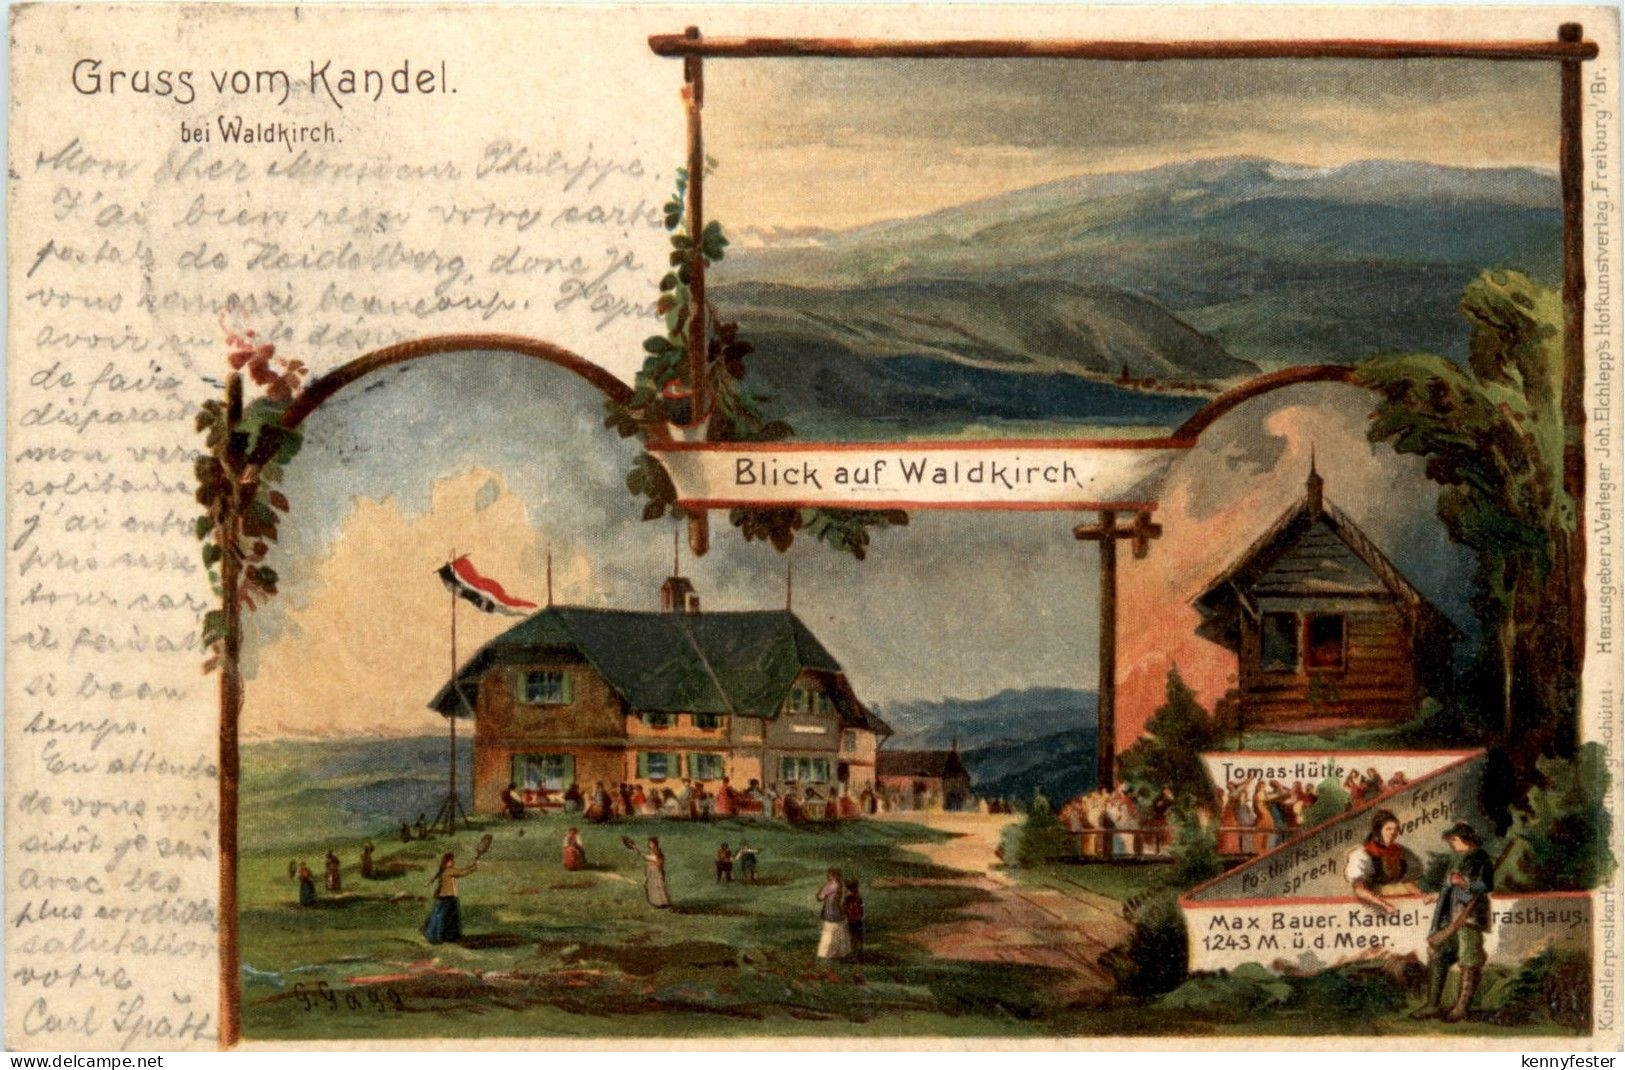 Gruss vom Kandel.
bei Waldkirch.
Mon cher Monsieur Philippe.
J'ai bien reçu votre carte
postale de Heidelberg, donc je
vous remerci beaucoup. J'apre
avoir eu le désir
de faire
disparaît
mon vers
solitaire
j'ai entre
pris une
tour car
il ferait
si beau
temps.
En attenda
de vous voir
sitôt je suis
avec les
plus cordiales
salutation
votre
Carl Spätt
Blick auf Waldkirch.
Tomas-Hütte
Posthilfsstelle Fern-
sprech verkehr
Max Bauer. Kandel- rasthaus.
1243 M. ü. d. Meer.
G. Gagg
Herausgeber u. Verleger Joh. Elchlepp's Hofkunstverlag, Freiburg i/Br.
Künstlerpostkarte geschützt.
delcampe.net
kennyfester